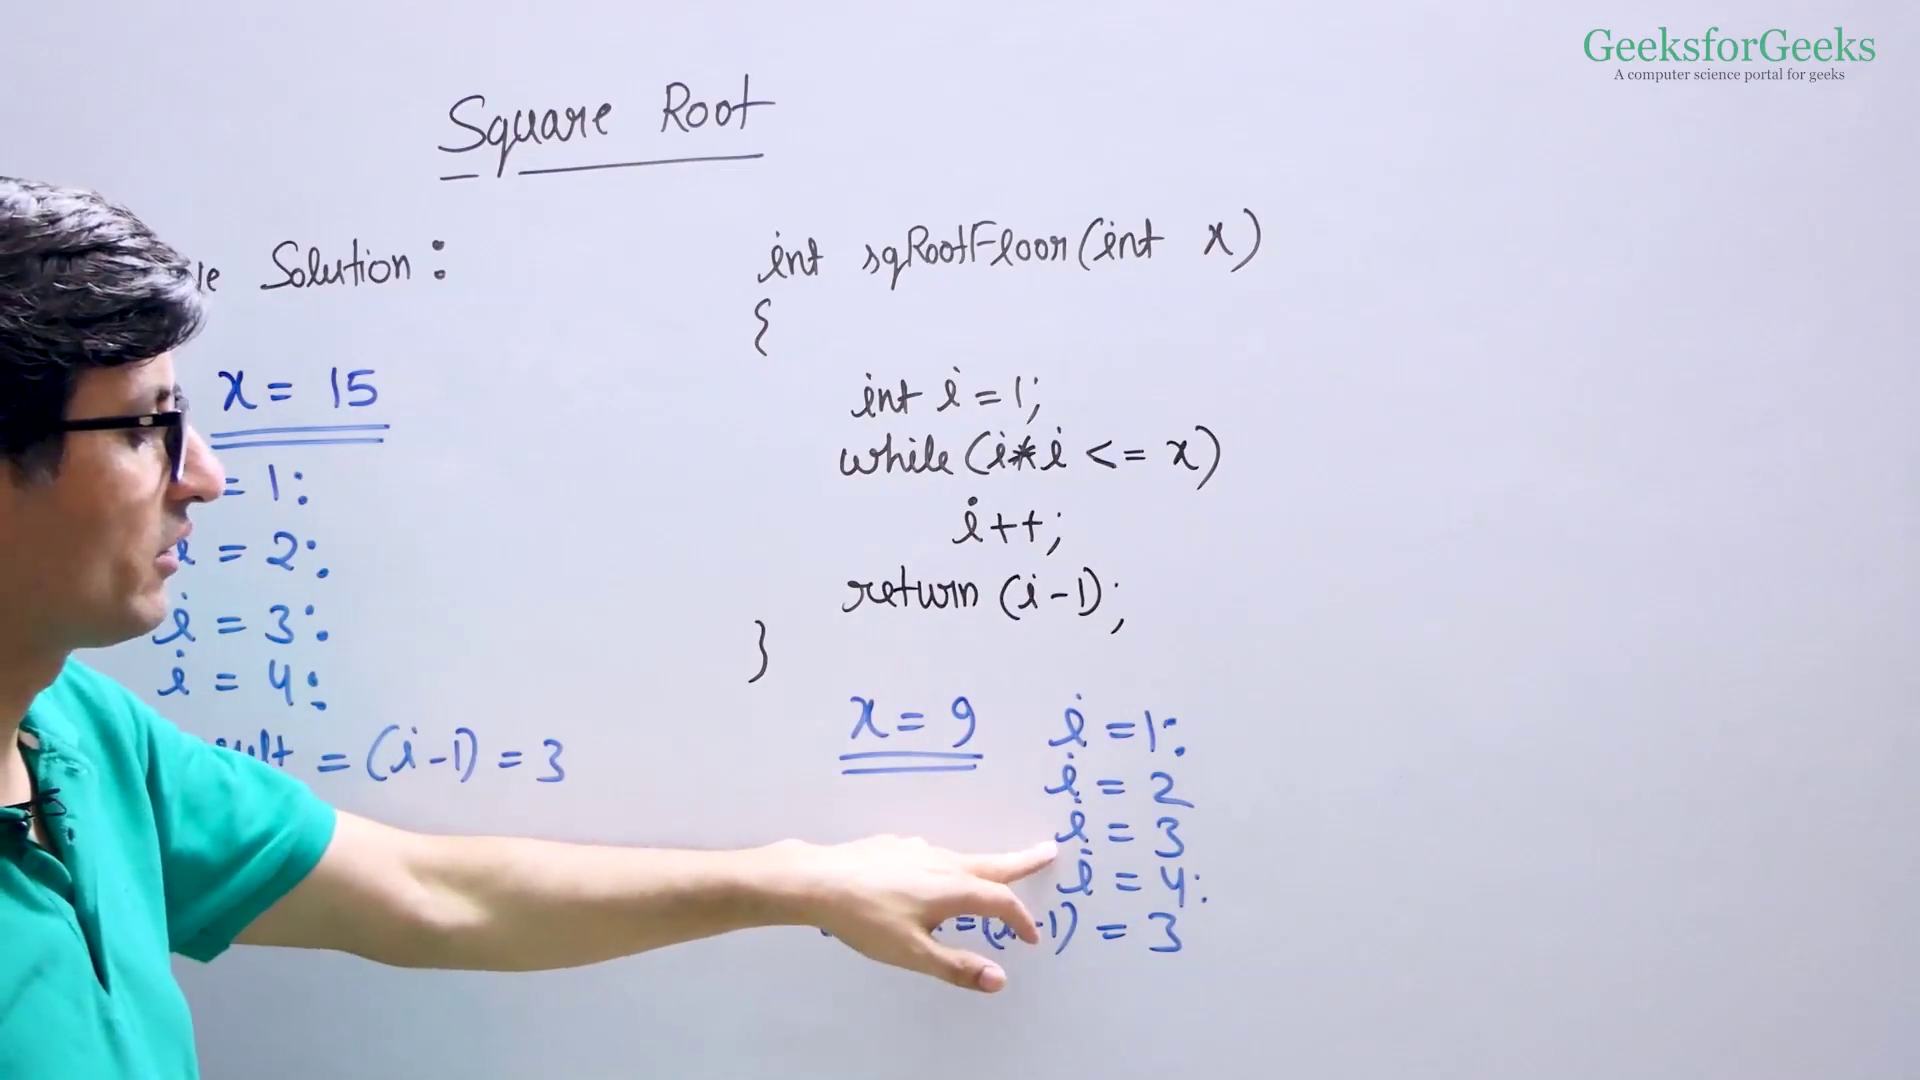 GeeksforGeeks
A computer science portal for geeks
Square Root
Solution :
x = 15
= 1 :
i = 2 :
i = 3 :
i = 4 :
= (i-1) = 3
int sqRootFloor(int x)
{
int i = 1;
while (i*i <= x)
i++;
return (i-1);
}
x = 9
i = 1 :
i = 2
i = 3
i = 4 :
= 3